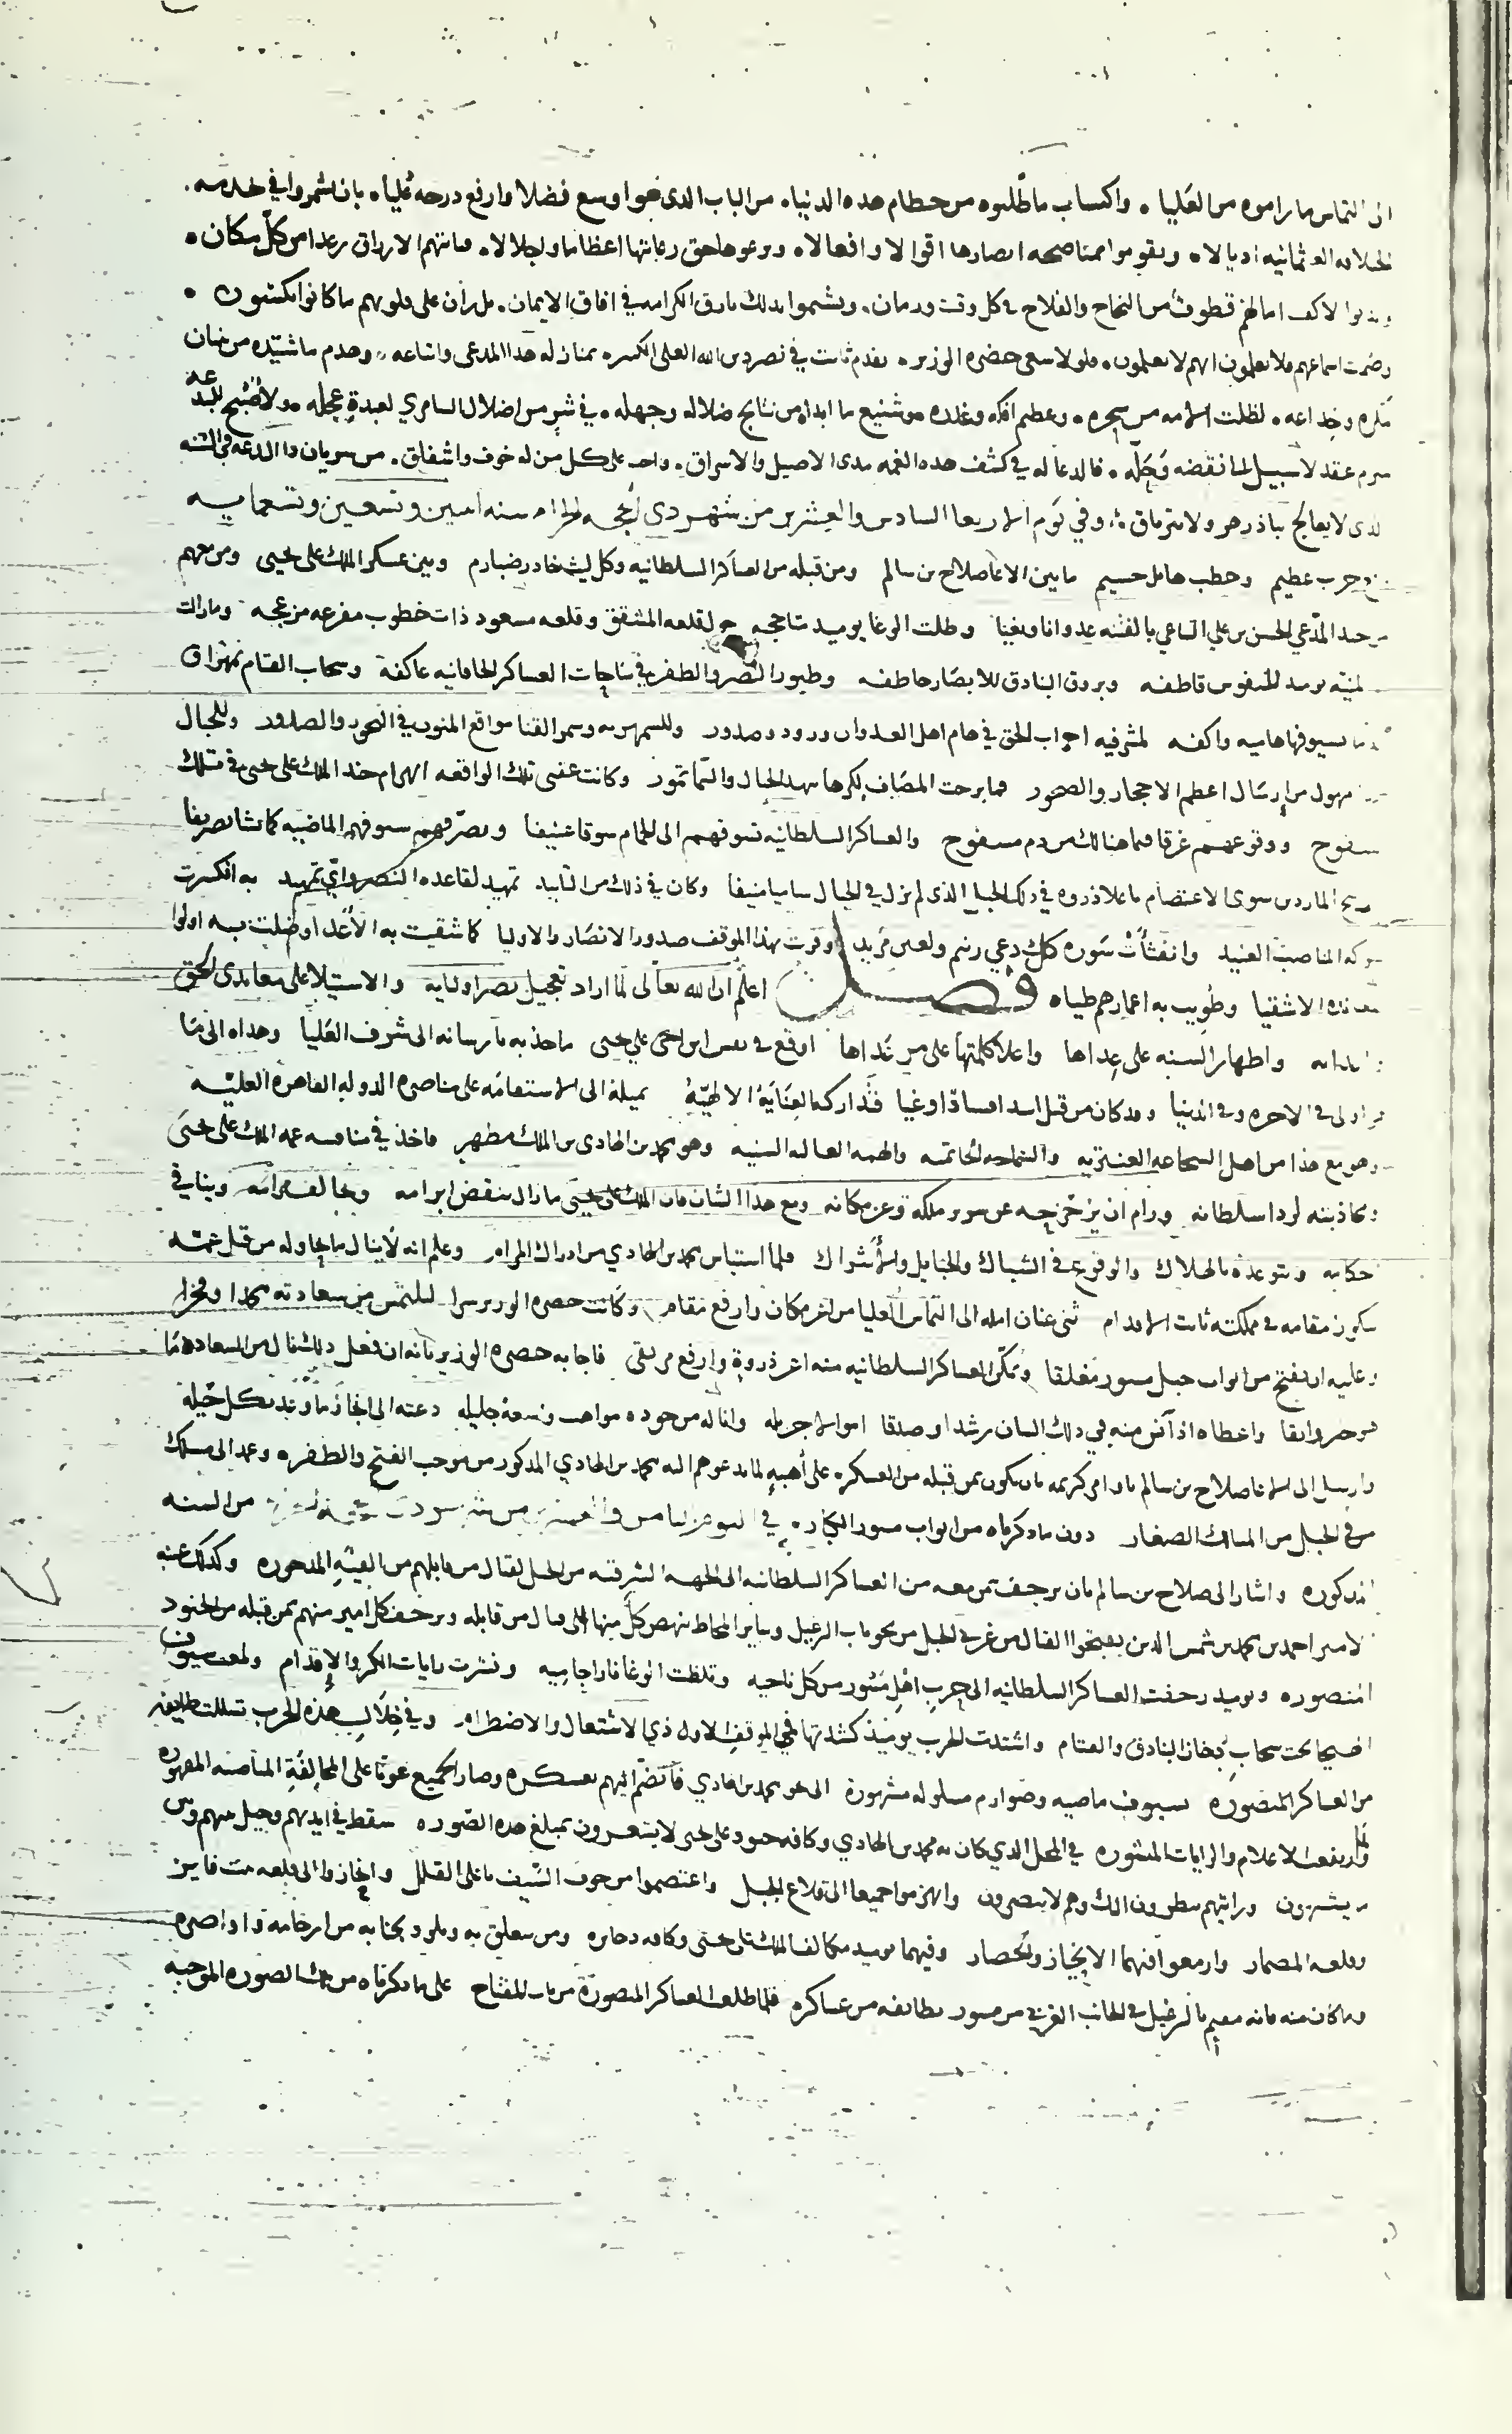 الى التماس ما راموه من العَليا ، واكتساب ما طلبوه من حطام هذه الدنيا ، من الباب الذى هو اوسع فضلا وارفع درجه عُليا ، بان يشمروا في خدمه
الخلافه العثمانيه اديالا ، ويقوموا بمناصحه انصارها اقوالا وافعالا ، ويرعوها حق رعايتها اعظاما واجلالا ، فياتيهم الارزاق رغدا من كل مكان ،
لاكف امالهم قطوف من النجاح والفلاح في كل وقت وزمان ، ويشيموا بذلك بارق الكرامه في افاق الايمان ، بل ران على قلوبهم ما كانوا يكسبون ،
وصمت اسماعهم فلا يعلمون انهم لا يعلمون ، فلولا سعى حضره الوزير ، بقدم ثابت في نصر دين الله العلى الكبير ، لمنازله هذا المدعى واتباعه ، وهدم ما شيّده من بنيان
مكره وخداعه ، لظلت الامه من سحره ، وعظيم افكه وغدره من شنيع ما ابداه من نتايج ضلاله وجهله ، في شرٍ من اضلال السامري لعبدةِ عجله ، ولاصبح للبدعه
مبرم عقد لا سبيل الى نقضه وحَلّه ، فالدعا له في كشف هذه الغمه مدى الاصيل والاشراق ، واجب على كل من له خوف واشفاق ، من سريان داا البدعه والفتنه
الذى لا يعالج بباذزهر ولا بترياق ، وفي يوم الاربعا السادس والعشرين من شهر ذي الحجه الحرام سنه اثنين وتسعين وتسعمايه
حرب عظيم وخطب هايل جسيم ما بين الاغا صلاح بن سالم ومن قبله من العساكر السلطانيه وكل ليث خادر ضبارم وبين عسكر الملك على يحيى ومن معهم
من جند المدّعي الحسن بن علي الساعي بالفتنه عدوانا وبغيا وظلت الوغا يوميد متاججه حول قلعه المشقق وقلعه مسعود ذات خطوب مفزعه مزعجه وما زالت
المنيّه يوميد للنفوس قاطفه وبروق البنادق للابصار خاطفه وطيور النصر والظفر في ساجات العساكر الخاقانيه عاكفة وسحاب القتام تهراق
بسيوفها هاميه واكفه لمشرفيه احزاب الحق في هام اهل العدوان ورود وصدور وللسمهريه وسمر القنا مواقع المنون في النحور والصدور وللجبال
مهول من ارسال اعظم الاحجار والصخور فما برحت المصاف بكرها تهد الجبال والسما تمور وكانت عقبى تلك الواقعه انهزام جند الملك على يحيى في تلك
سفوح ووقوعهم غرقا فيما هنالك من دم مسفوح والعساكر السلطانيه تسوقهم الى الحمام سوقا عنيفا وتصرّفهم سيوفهم الماضيه كما تشا تصريفا
الماردين سوى الاعتصام باعلا ذروه في ذلك الجبل الذى لم يزل في الجبال ساميا منيفا وكان في ذلك من التاييد تمهيد لقاعده النصر واي تمهيد به انكسرت
شوكه المناصب العنيد وانفثأت سَوره كل دعي زنيم ولعين مَريد وقرت بهذا الموقف صدور الانصار والاوليا كما شقيت به الاعدا وضلت به اولوا
الاشقيا وطويت به اعمارهم طياه فصل اعلم ان الله تعالى لما اراد تعجيل نصر اوليايه والاستيلا على معاندى الحق
واظهار السنيه على عداها واعلا كلمتها على من عداها اوقع في نفس ابن اخى علي يحيى ما حذبه بارسانه الى شرف العَليا وهداه الى ما
هو اولى في الاخره وفي الدنيا وقد كان من قبل اسد افسادا وغيا فتداركه العناية الالهيّة بميله الى الاستقامه على مناصره الدوله القاهره العليّه
وهو مع هذا من اهل الشجاعه العنتريه والسماحه الحاتميه والهمه العاليه السنيه وهو محمد بن الهادى بن الملك مطهر فاخذ في منافسه عمه الملك على يحيى
ومجاذبته لردا سلطانه ورام ان يزحزحه عن سرير ملكه وعن مكانه ومع هذا الشان فان الملك على يحيى ما زال ينقض ابرامه ويخالف مرامه وينافي
احكامه ويتوعده بالهلاك والوقوع في الشباك والحبايل والاشراك فلما استياس محمد بن الهادي من ادراك المرام وعلم انه لا ينال ما يحاوله من قبل عمّه
بكون مقامه في مملكته ثابت الاقدام ثنى عنان امله الى التماس العليا من اعز مكان وارفع مقام وكانت حضره الوزير سرا ليلتمس من سعادته مجدا وفخرا
وعليه ان يفتح من ابواب جبل مسور مغلقا ويمكّن العساكر السلطانيه منه اعز ذروةٍ وارفع مرتقى فاجابه حضره الوزير بانه ان فعل ذلك نال من السعاده ما
واعطاه اذ آنس منه في ذلك اللسان رشدا وصدقا اموالا جزيله وانا له من جوده مواهب واسعة جليله دعته الى انجاز ما وعد بكل حيله
وارسل الى الاغا صلاح بن سالم باوامر كريمه بان يكون بمن قبله من العسكر على أُهبهٍ لما يدعوهم اليه محمد بن الهادي المذكور من موجب الفتح والظفر وعمد الى مسلك
من في الجبل من المسالك الصغار دون ما ذكرناه من ابواب مسور الكبار في اليوم الخامس والعشرين من شهر من السنه
المذكوره واشار الى صلاح بن سالم بان يزحف بمن معه من العساكر السلطانيه الى الجهه الشرقيه من الجبل لقتال من قابلهم من الفئه المدحوره وكذلك عنه
الامير احمد بن محمد بن شمس الدين بفتحوا القتال من غربي الجبل من نحو باب الرغيل وساير المحاط نهض كلٌ منها الى قتال من قابله ويزحف كل امير منهم بمن قبله من الجنود
المنصوره ويوميد زحفت العساكر السلطانيه الى حرب اهل مسور من كل ناحيه وتلظت الوغا نارا حاميه ونشرت رايات الكر والاقدام ولمعت سيوف
تحت سحاب دخان البنادق والقتام واشتدت الحرب يوميذ كشدتها في الموقف الاول ذي الاشتعال والاضطرام وفي خلال هذه الحرب تسللت طايفه
من العساكر المنصوره بسيوف ماضيه وصوارم مسلوله مشهورة الى نحو محمد بن الهادي فانضم اليهم بعسكره وصار الجميع عونا على المخالفة المناصبه المقهوره
فلما وارتفعت الاعلام والرايات المنشوره في المحل الذي كان به محمد بن الهادي وكافه جنود على يحيى لا يشعرون بمبلغ هذه الصوره سقط في ايديهم وحيل بينهم وبين
ما يشتهون ورايتهم ينظرون اليك وهم لا يبصرون وانهزموا جميعا الى قلاع الجبل واعتصموا من خوف السيف باعلى القلل وانحازوا الى قلعه بيت فايز
وقلعه المصمار وازمعوا فيهما الانحياز والحصار وفيهما يوميد مخالف الملك على يحيى وكافه ذخايره ومن يتعلق به ويلوذ بجنابه من ارحامه وااواصره
وما كان منه فانه مقيم بالرغيل في الجانب الغربي من مسور بطايفه من عساكره فلما طلعت العساكر المنصورة من باب المفتاح على ما ذكرناه من تلك الصوره الموجبه